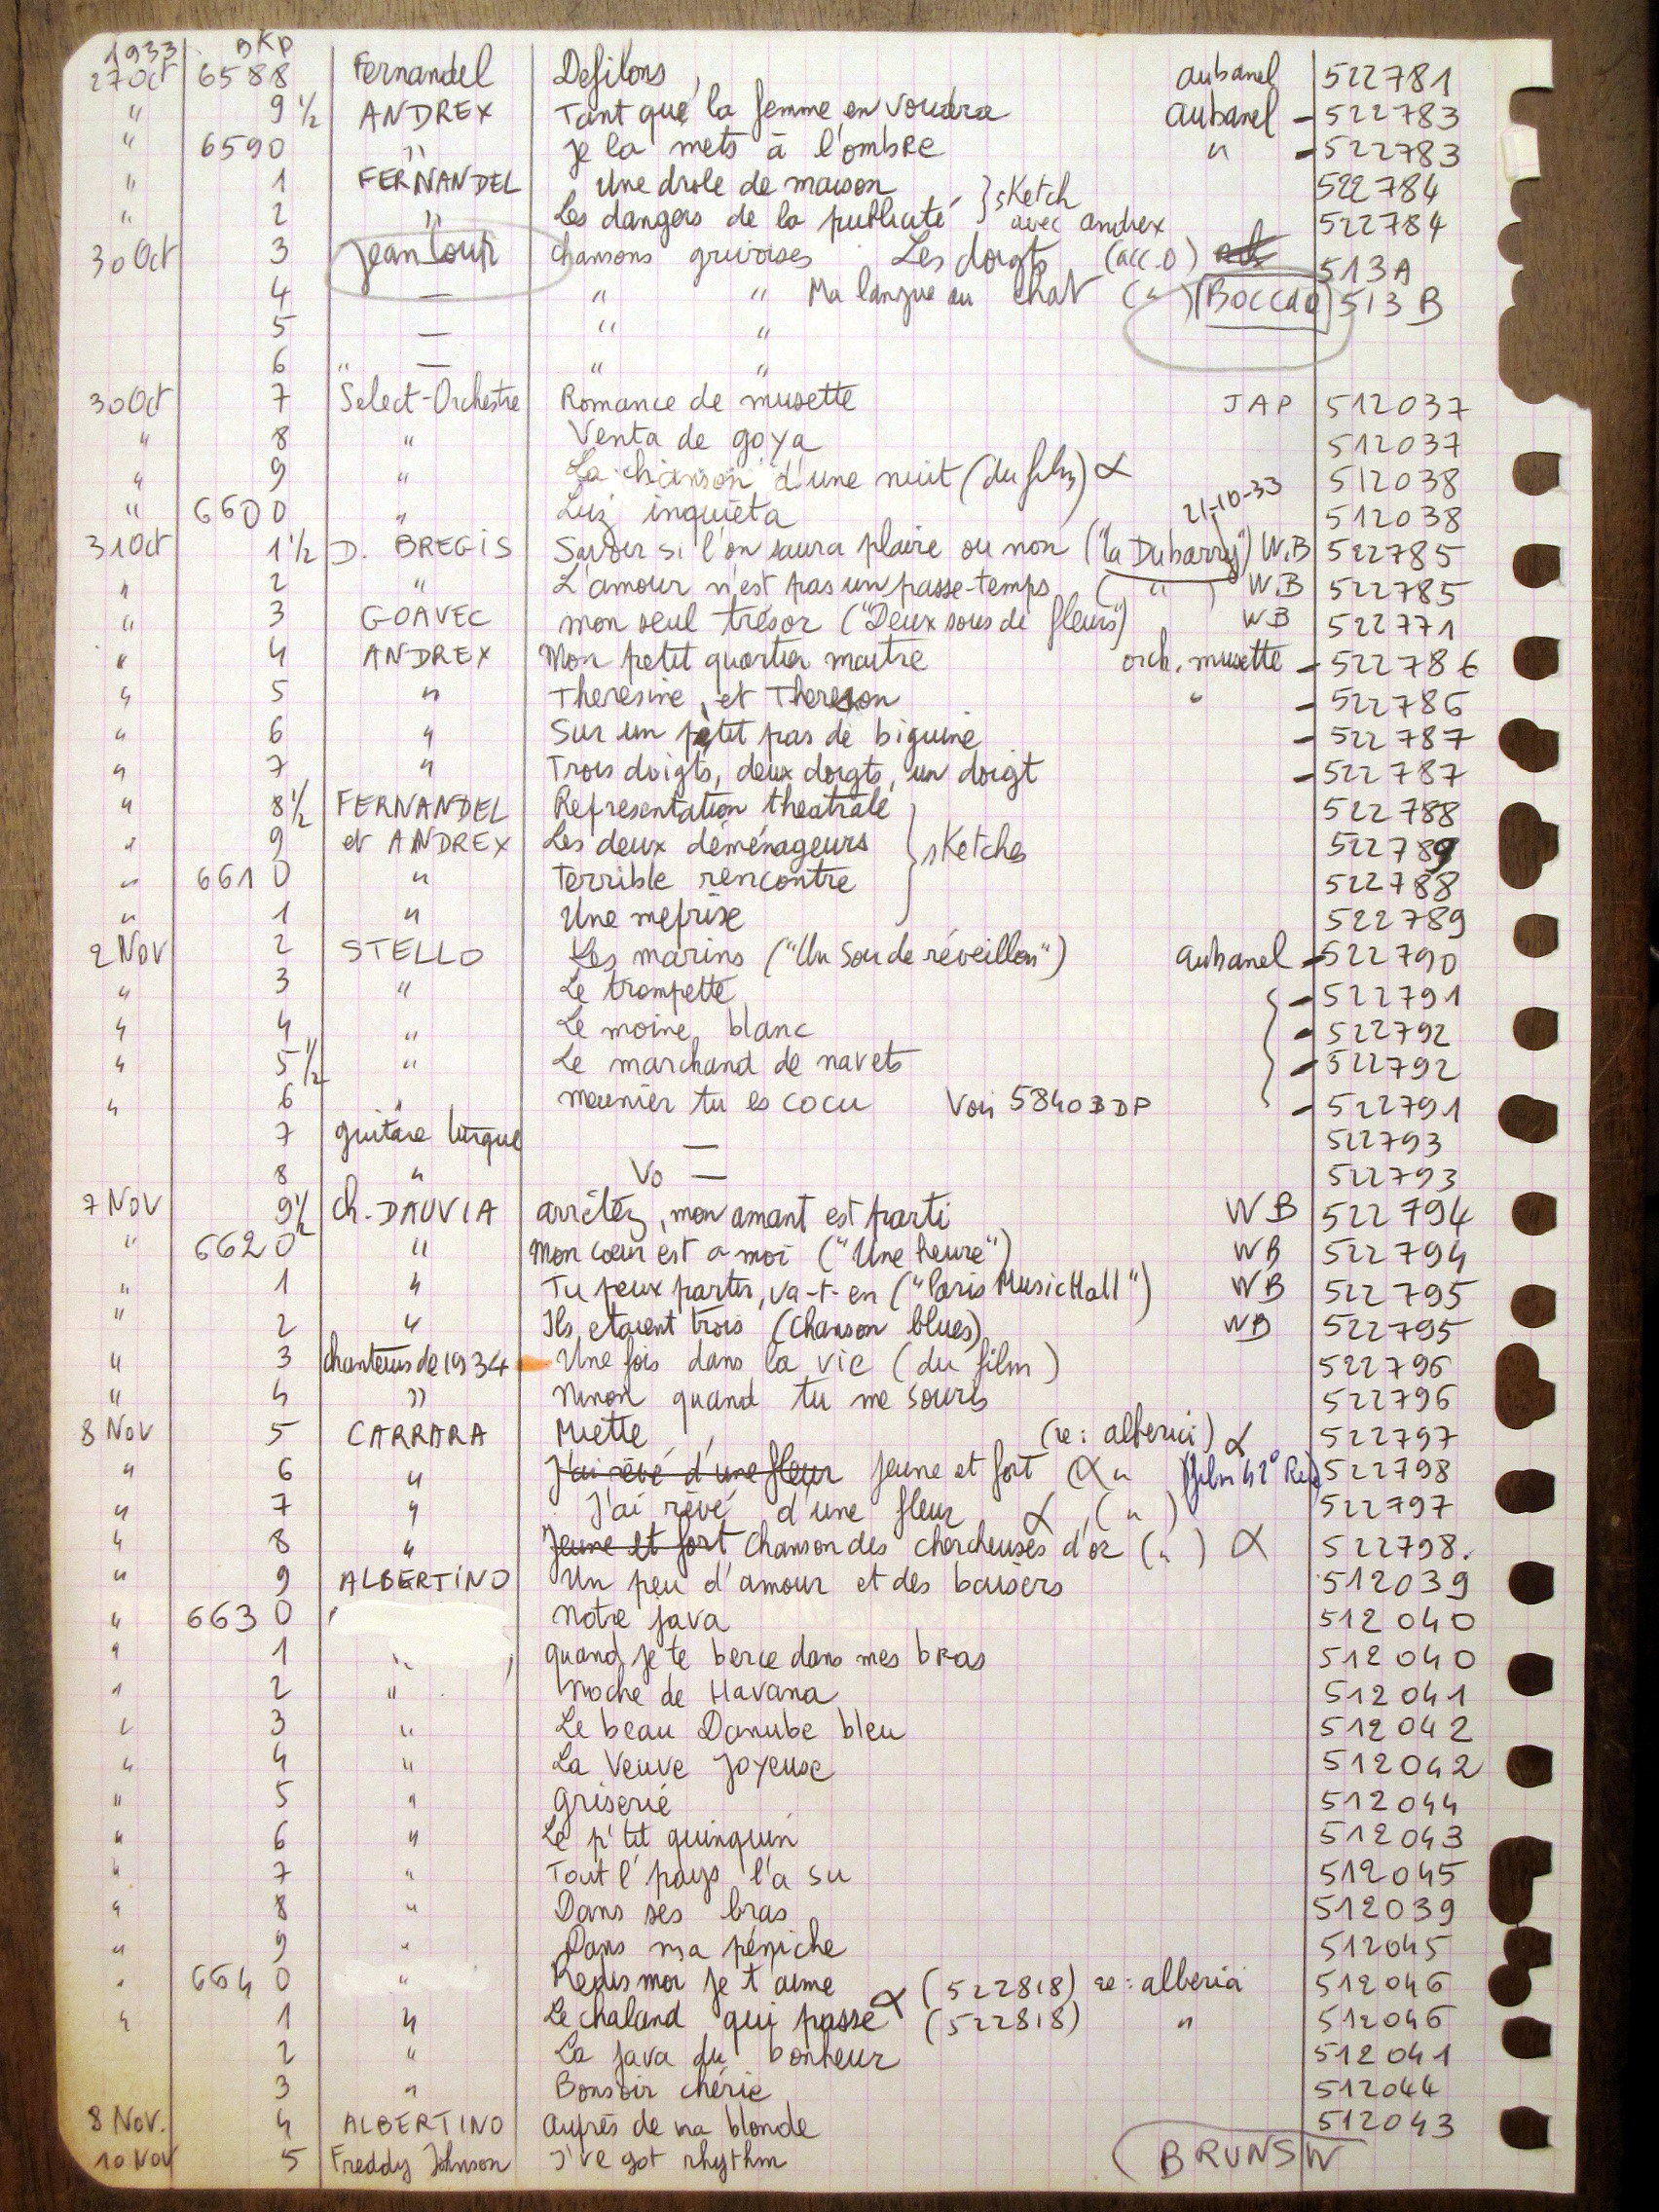 1933 BKP
27 Oct 6588 Fernandel Defilons aubanel 522781
" 9 1/2 ANDREX Tant que la femme en voudra aubanel - 522783
" 6590 " Je la mets à l'ombre " - 522783
" 1 FERNANDEL Une drole de maison } sketch 522784
" 2 " Les dangers de la publicité } avec andrex 522784
30 Oct 3 Jean Lour chansons grivoises Les doigts (acc. O) 513 A
4 — " " Ma langue au chat (") BOCCAC 513 B
5 — " "
6 " — " "
30 Oct 7 Select-Orchestre Romance de musette JAP 512037
" 8 " Venta de goya 512037
" 9 " La chanson d'une nuit (du film) α 512038
" 6600 " Luz inquieta 21-10-33 512038
31 Oct 1 1/2 D. BREGIS Savoir si l'on saura plaire ou non ("la Dubarry") W.B 522785
" 2 " L'amour n'est pas un passe-temps ( " ) W.B 522785
" 3 GOAVEC mon seul trésor ("Deux sous de fleurs") WB 522771
" 4 ANDREX Mon petit quartier maitre orch. musette - 522786
" 5 " Theresine, et Thereson " - 522786
" 6 " Sur un petit pas de biguine - 522787
" 7 " Trois doigts, deux doigts, un doigt - 522787
" 8 1/2 FERNANDEL Representation theatrale 522788
" 9 et ANDREX Les deux déménageurs } sketches 522789
" 6610 " terrible rencontre 522788
" 1 " Une meprise 522789
2 Nov 2 STELLO Les marins ("Un Soir de réveillon") aubanel - 522790
" 3 " Le trompette - 522791
" 4 " Le moine blanc - 522792
" 5 1/2 " Le marchand de navets - 522792
" 6 " meunier tu es cocu Voir 5840 BDP - 522791
7 guitare turque — 522793
8 " Vo — 522793
7 Nov 9 1/2 ch. DAUVIA arrêtéz, mon amant est parti WB 522794
" 6620 " Mon cœur est a moi ("Une heure") WB 522794
" 1 " Tu peux partir, va-t-en ("Paris Music Hall") WB 522795
" 2 " Ils etaient trois (chanson blues) WB 522795
" 3 chanteurs de 1934 Une fois dans la vie (du film) 522796
" 4 " Ninon quand tu me souris 522796
8 Nov 5 CARRARA Miette (re: alberici) α 522797
" 6 " J'ai rêvé d'une fleur Jeune et fort (α " (film 42° Rue) 522798
" 7 " J'ai rêvé d'une fleur α ( " ) 522797
" 8 " Jeune et fort Chanson des chercheuses d'or ( " ) α 522798.
" 9 ALBERTINO Un peu d'amour et des baisers 512039
" 6630 Notre java 512040
" 1 " quand je te berce dans mes bras 512040
" 2 " Noche de Havana 512041
" 3 " Le beau Danube bleu 512042
" 4 " La Veuve Joyeuse 512042
" 5 " Griserie 512044
" 6 " Le p'tit quinquin 512043
" 7 " Tout l'pays l'a su 512045
" 8 " Dans ses bras 512039
" 9 " Dans ma péniche 512045
" 6640 " Redis moi je t'aime α (522818) re: alberici 512046
" 1 " Le chaland qui passe (522818) " 512046
2 " La java du bonheur 512041
3 " Bonsoir chérie 512044
8 Nov. 4 ALBERTINO auprès de ma blonde 512043
10 Nov 5 Freddy Johnson I've got rhythm BRUNSW